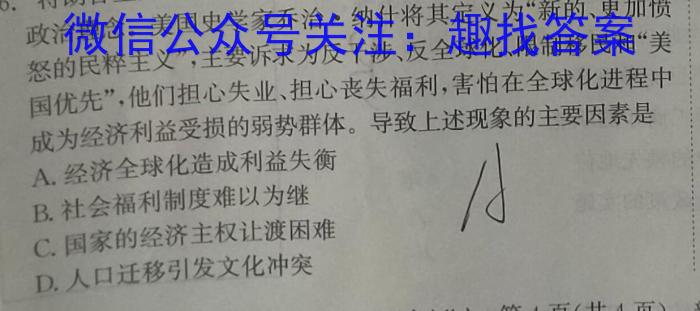 微信公众号关注：趣找答案
政治 美国史学家乔治·纳什将其定义为“新的、更加愤
怒的民粹主义”，主要诉求为反干涉、反全球化、限制移民和“美
国优先”，他们担心失业、担心丧失福利，害怕在全球化进程中
成为经济利益受损的弱势群体。导致上述现象的主要因素是
A. 经济全球化造成利益失衡
B. 社会福利制度难以为继
C. 国家的经济主权让渡困难
D. 人口迁移引发文化冲突